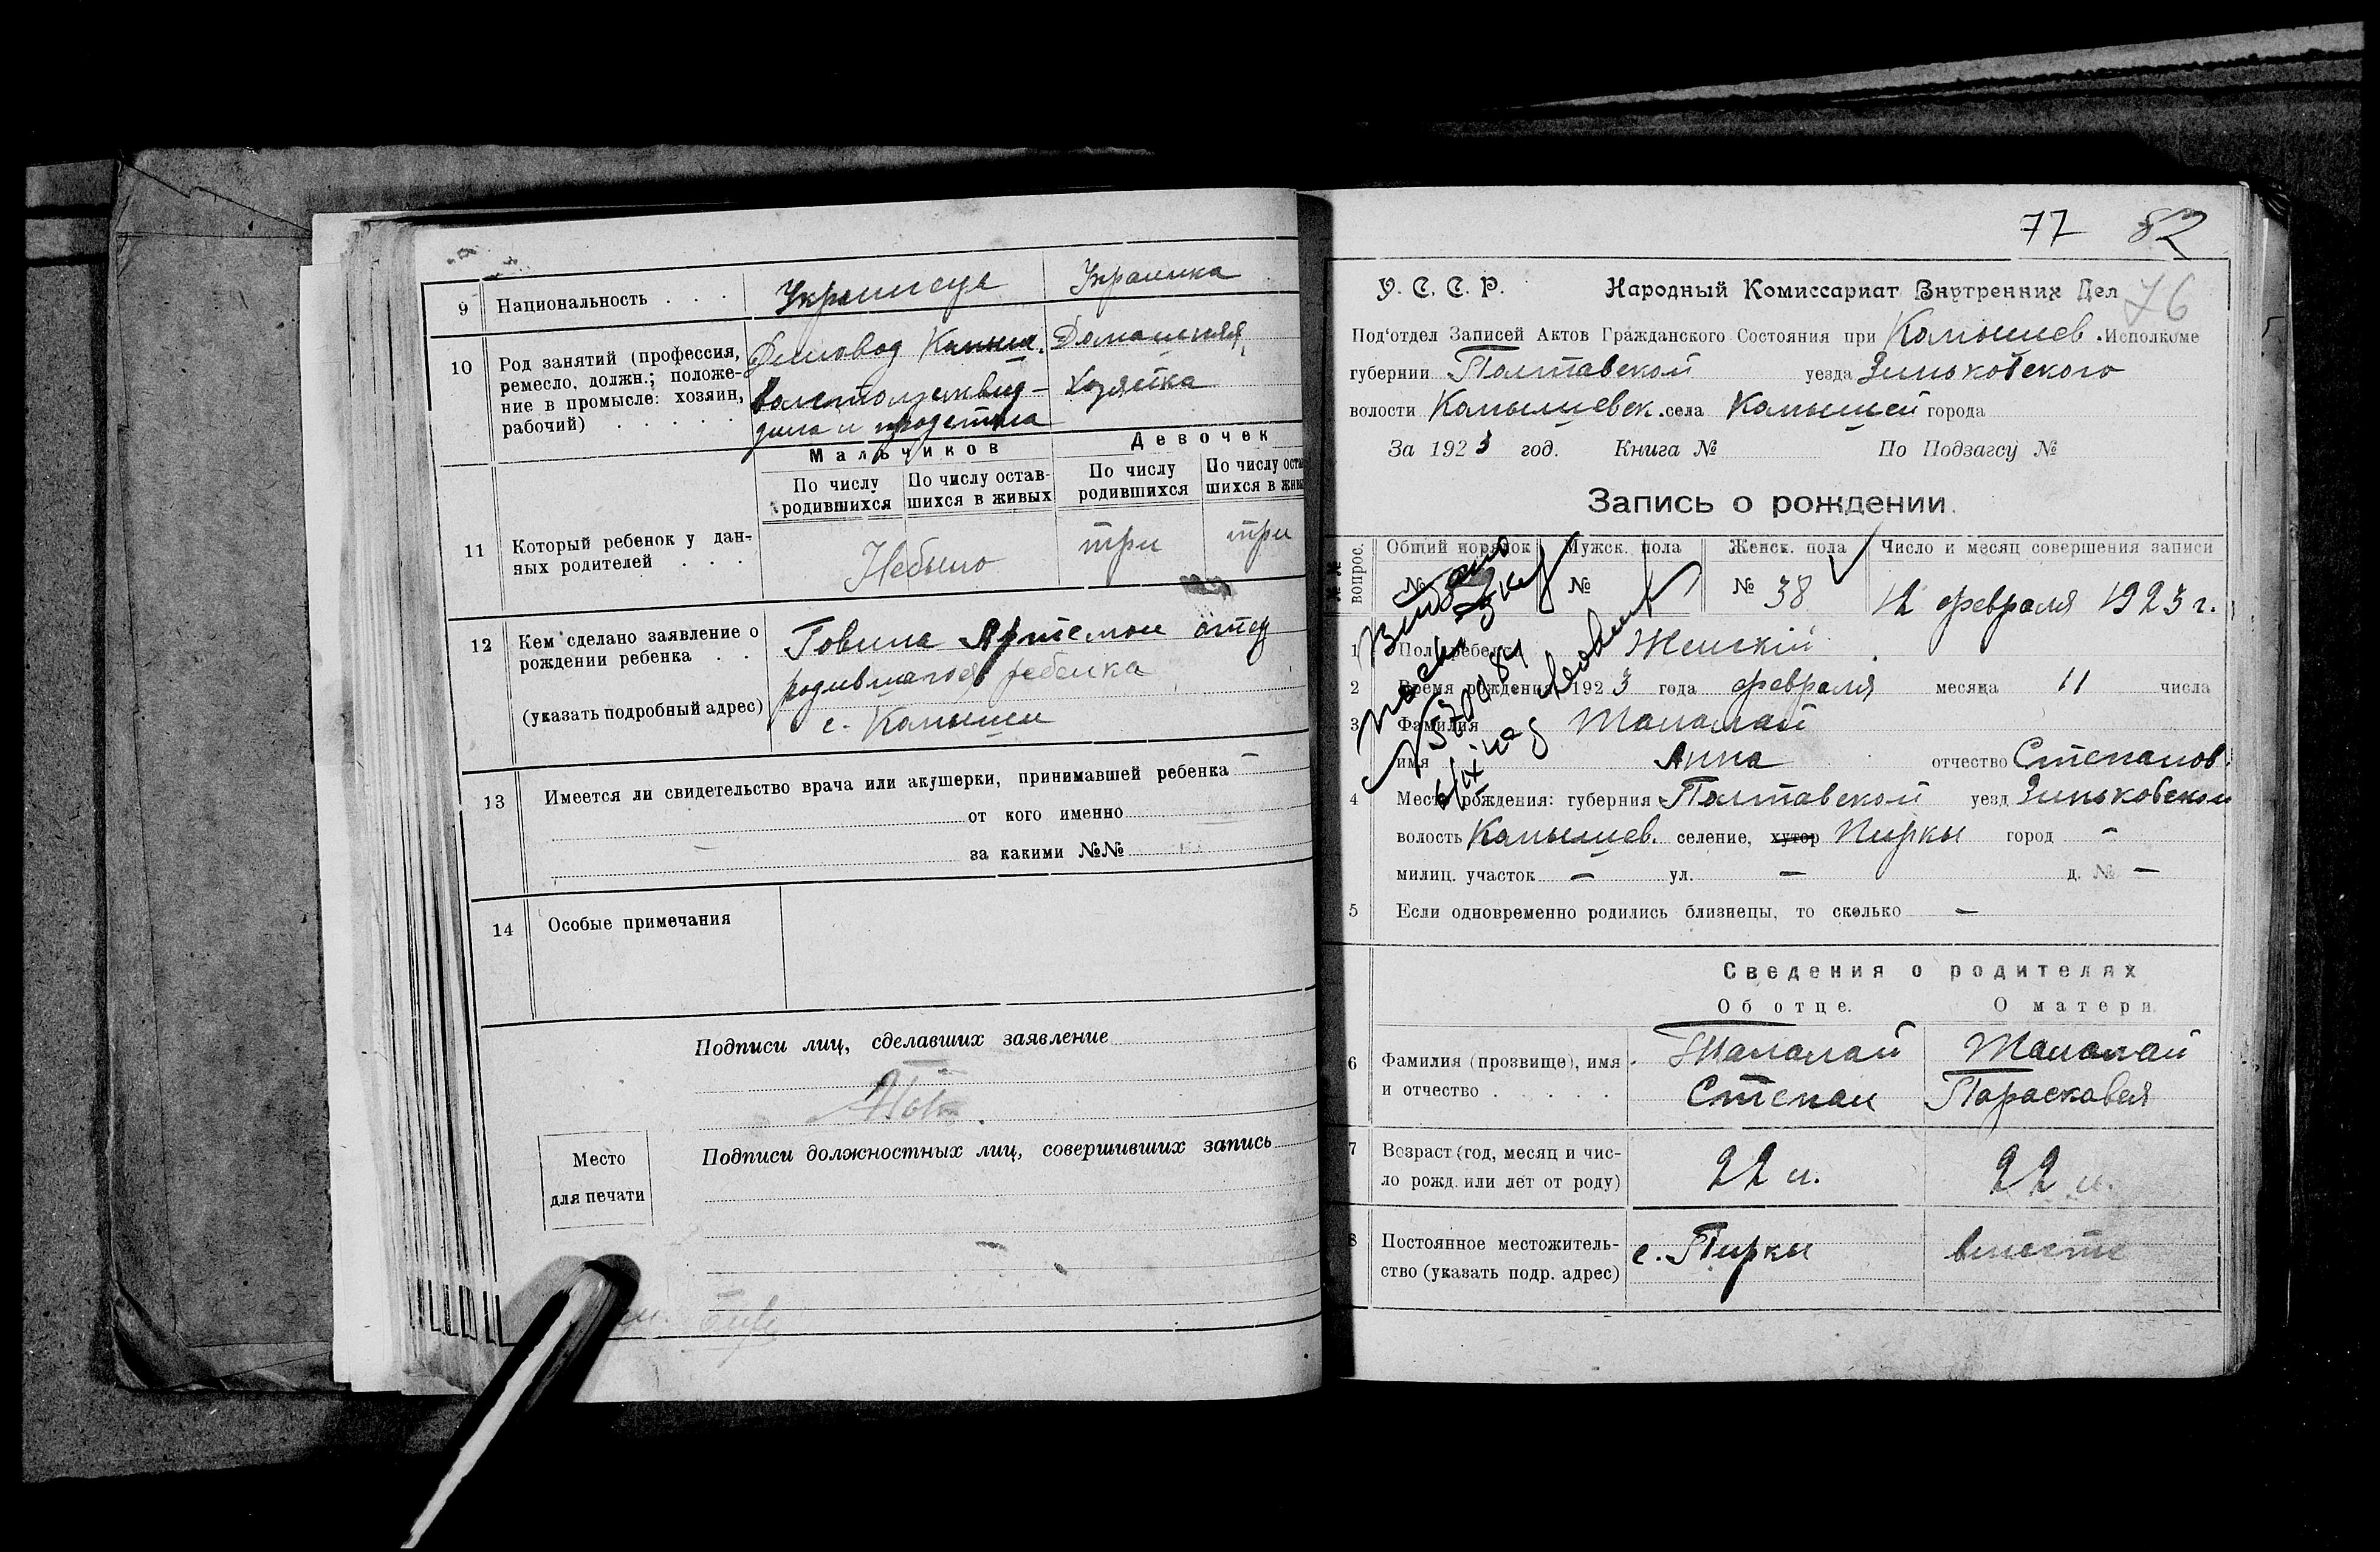 9 Национальность . . . Украинец Украинка
10 Род занятий (профессия, ремесло, должн.; положе-
ние в промысле: хозяин,
рабочий) . . . . .
Деловод Камыш. Домашняя
хозяйка
Мальчиков Девочек
По числу родившихся По числу остав-шихся в живых По числу родившихся По числу оста шихся в живы
11 Который ребенок у дан-
ных родителей . . .
Небыло три три
12 Кем сделано заявление о
рождении ребенка . .
(указать подробный адрес)
Говила Артемон отец
родившагося ребенка
с. Камыши
13 Имеется ли свидетельство врача или акушерки, принимавшей ребенка —
от кого именно
— за какими №№
14 Особые примечания
Подписи лиц, сделавших заявление
Место
для печати
Подписи должностных лиц, совершивших запись
77 82
76
У. С. С. Р. Народный Комиссариат Внутренних Дел
Под'отдел Записей Актов Гражданского Состояния при Камышев. Исполкоме
губернии Полтавской уезда Зиньковского
волости Камышевск. села Камышей города
За 1923 год. Книга № По Подзагсу №
Запись о рождении.
№№ вопрос. Общий порядок Мужск. пола Женск. пола Число и месяц совершения записи
№ № № 38 12 февраля 1923 г.
1 Пол ребенка Женскій
2 Время рождения 1923 года февраля месяца 11 числа
3 Фамилия Шаламай
имя Анна отчество Степанов.
4 Место рождения: губерния Полтавской уезд Зиньковском
волость Камышев. селение, хутор Пирки город —
милиц. участок — ул. — д. № —
5 Если одновременно родились близнецы, то сколько —
Сведения о родителях
Об отце. О матери.
6 Фамилия (прозвище), имя
и отчество . . . . .
Шаламай Степан
Шаламай Парасковья
7 Возраст (год, месяц и чис-
ло рожд. или лет от роду)
22 л. 22 л.
8 Постоянное местожитель-
ство (указать подр. адрес)
с. Пирки вместе